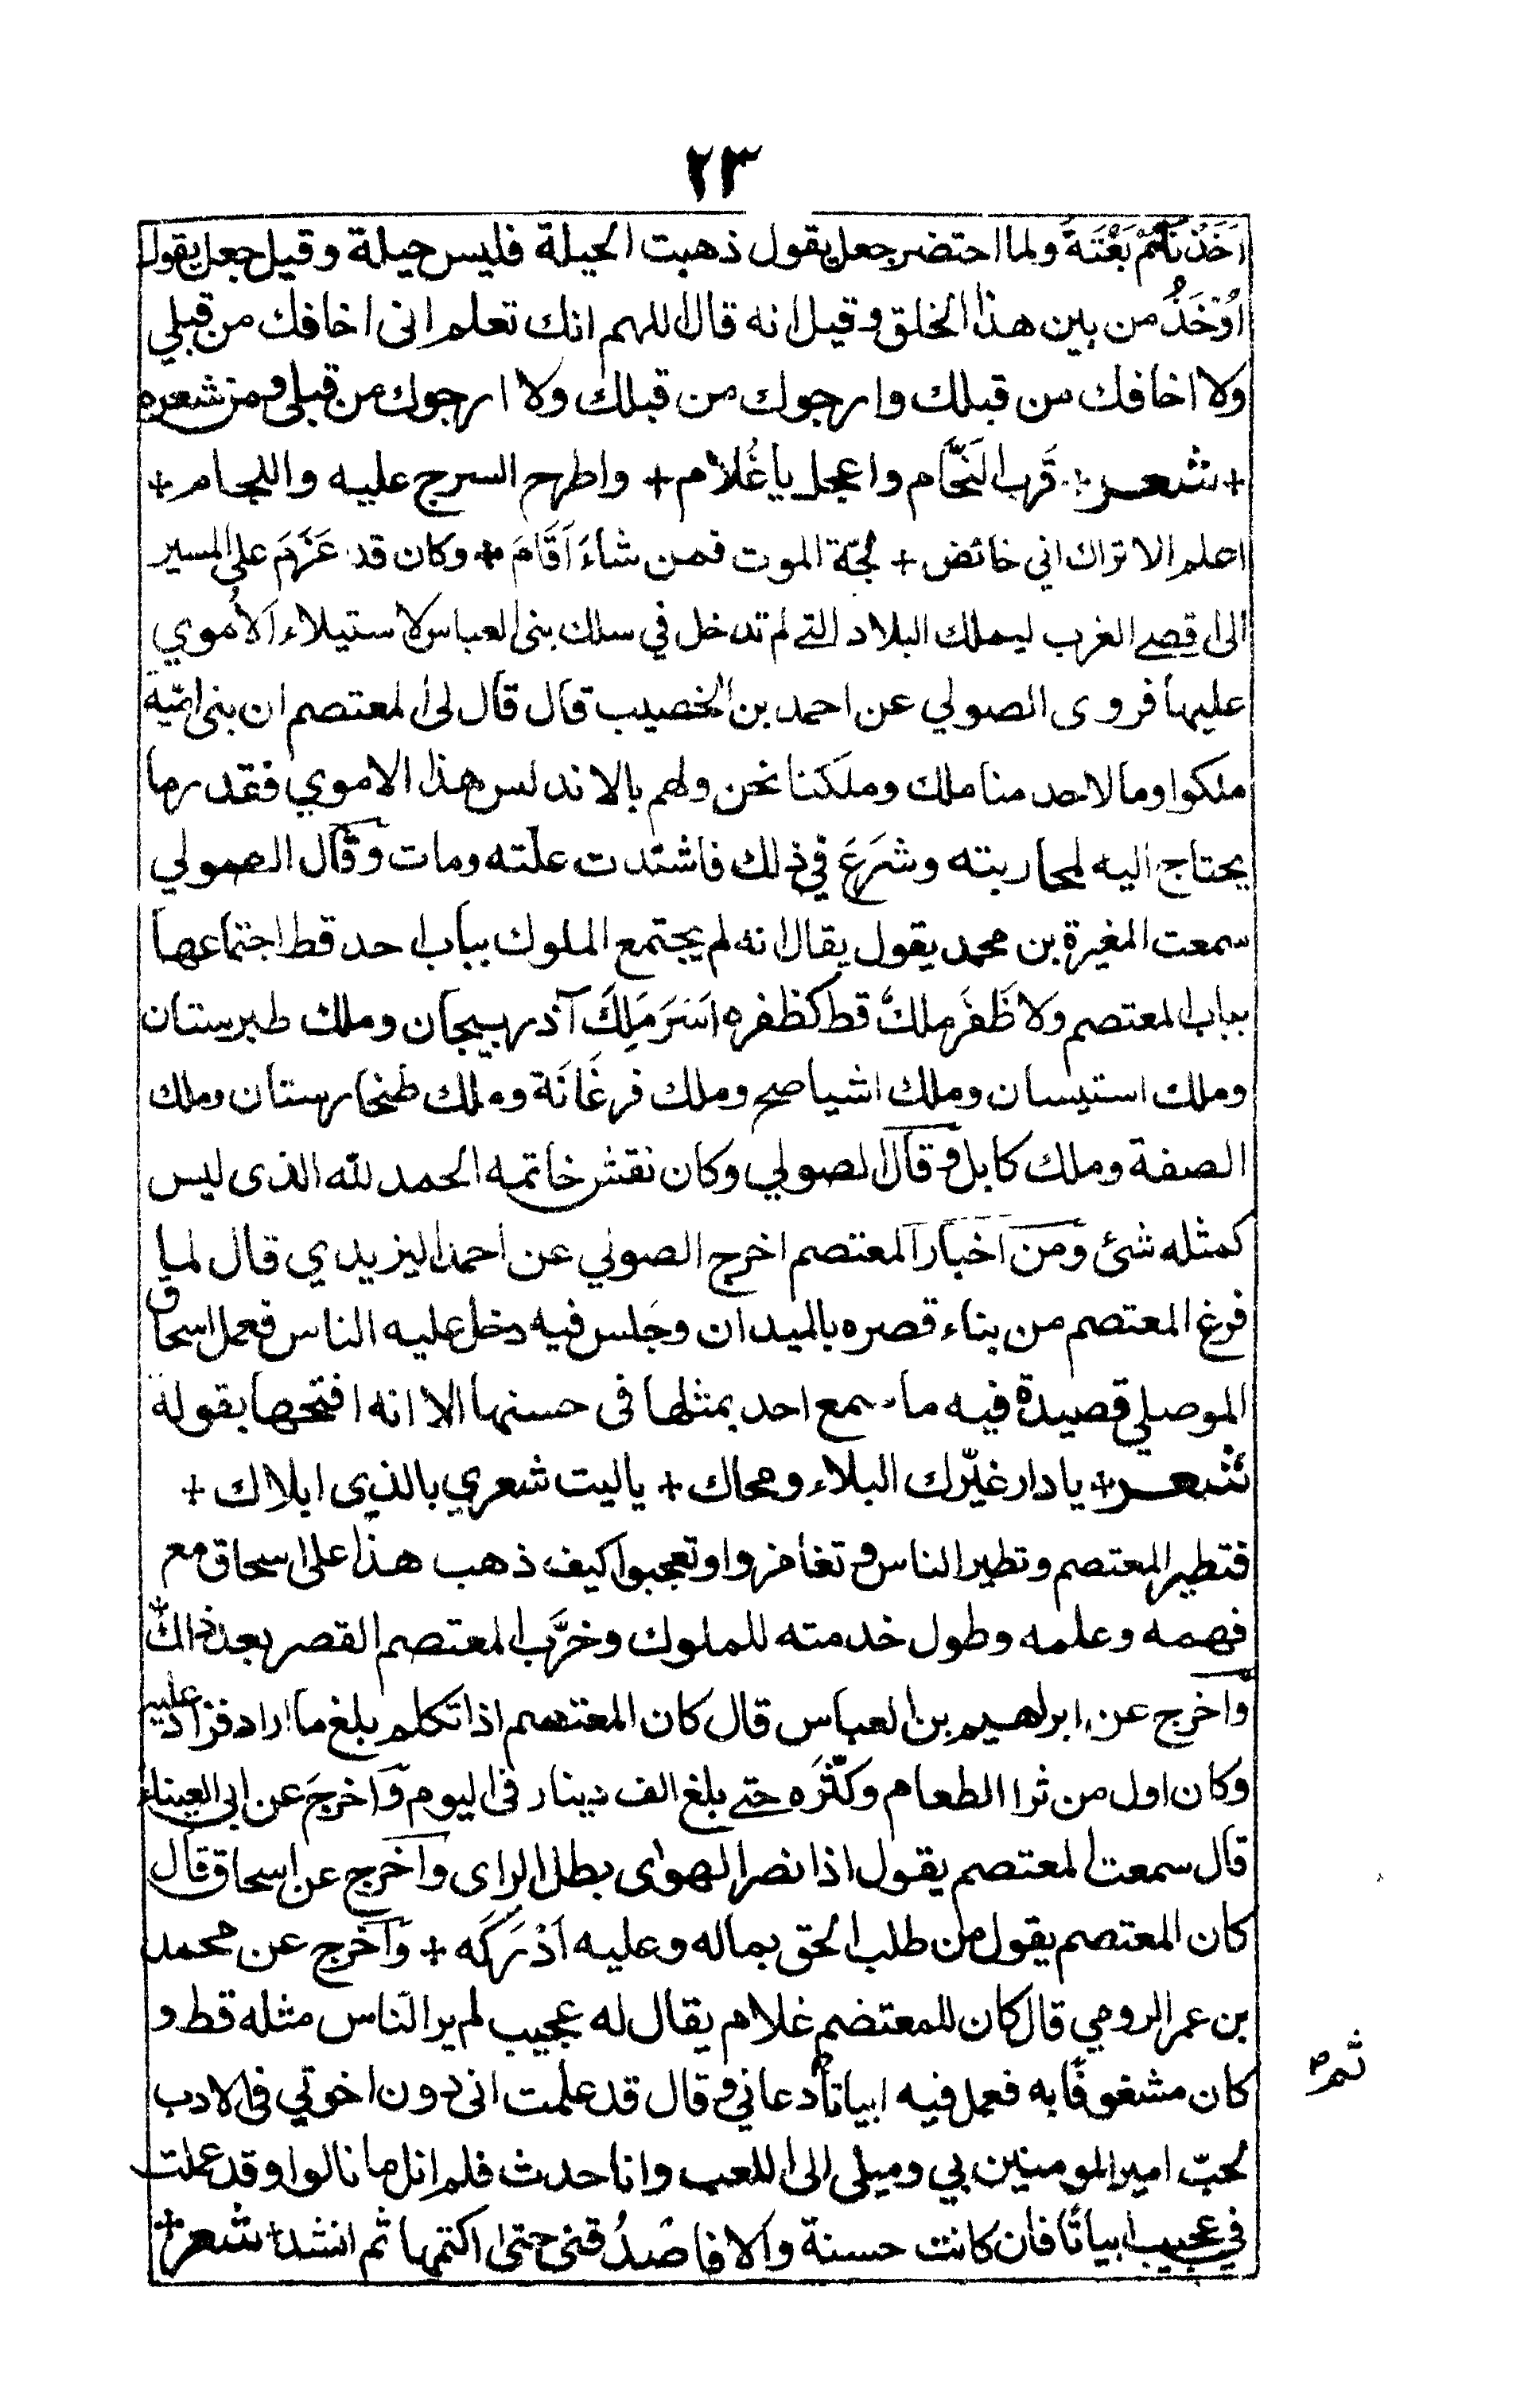 ٢٣
اَخَذْنَاهُمْ بَغْتَةً ولما احتضر جعل يقول ذهبت الحيلة فليس حيلة وقيل جعل يقول
اُوْخَذُ من بين هذا الخلق وقيل انه قال اللهم انك تعلم انى اخافك من قبلي
ولا اخافك من قبلك وارجوك من قبلك ولا ارجوك من قبلى ومن شعره
+ شعر + قَرِّب النَحَّام واعجل يا غُلام + واطرح السرج عليه واللجام +
اعلم الاتراك اني خائض + لجّة الموت فمن شاءَ اَقَامَ + وكان قد عَزَمَ على المسير
الى اقصے الغرب ليملك البلاد التے لم تدخل في سلك بنى العباس لاستيلاء الاُموي
عليها فروى الصولي عن احمد بن الخصيب قال قال لى المعتصم ان بنى اميّة
ملكوا وما لاحد منا ملك وملكنا نحن ولهم بالاندلس هذا الاموي فقدر ما
يحتاج اليه لمحاربته وشَرَعَ في ذلك فاشتدت علّته ومات وقال الصولي
سمعت المغيرة بن محمد يقول يقال انه لم يجتمع الملوك بباب احد قط اجتماعها
بباب المعتصم ولا ظَفَر ملكٌ قط كظفره اَسَرَ مَلِكَ آذربيجان وملك طبرستان
وملك استيسان وملك اشياصح وملك فرغَانَة وملك طخارستان وملك
الصفة وملك كابل وقال الصولي وكان نقش خاتمه الحمد لله الذى ليس
كمثله شئ ومن اخبار المعتصم اخرج الصولي عن احمد اليزيدي قال لما
فرغ المعتصم من بناء قصره بالميدان وجَلس فيه دخل عليه الناس فعمل اسحاق
الموصلي قصيدة فيه ما سمع احد بمثلها فى حسنها الا انه افتتحها بقوله
شعر + يا دار غيّرك البلاء ومحاك + ياليت شعري بالذي ابلاك +
فتطير المعتصم وتطير الناس وتغامزوا وتعجبوا كيف ذهب هذا على اسحاق مع
فهمه وعلمه وطول خدمته للملوك وخرَّب المعتصم القصر بعد ذالك
واخرج عن ابراهيم بن العباس قال كان المعتصم اذا تكلم بلغ ما اراد فزاد عليه
وكان اول من ثرا الطعام وكثّرَه حتے بلغ الف دينار فى اليوم وَاخرجَ عن ابى العيناء
قال سمعت المعتصم يقول اذا نصر الهواى بطل الراى واخرج عن اسحاق قال
كان المعتصم يقول من طلب الحق بماله وعليه اَدْرَكَه + وَاخرج عن محمد
بن عمر الرومي قال كان للمعتضم غلام يقال له عجيب لم ير النّاس مثله قط و
كان مشغوفًا به فعمل فيه ابياتاً دعاني وقال قد علمت انى دون اخوتي فى الادب
ثم
لحبّ امير المومنين بي وميلى الى اللعب وانا حدث فلم انل ما نالوا وقد عملت
في عجيب ابياتًا فان كانت حسنة والا فاصْدُقنى حتى اكتمها ثم انشد + شعر +